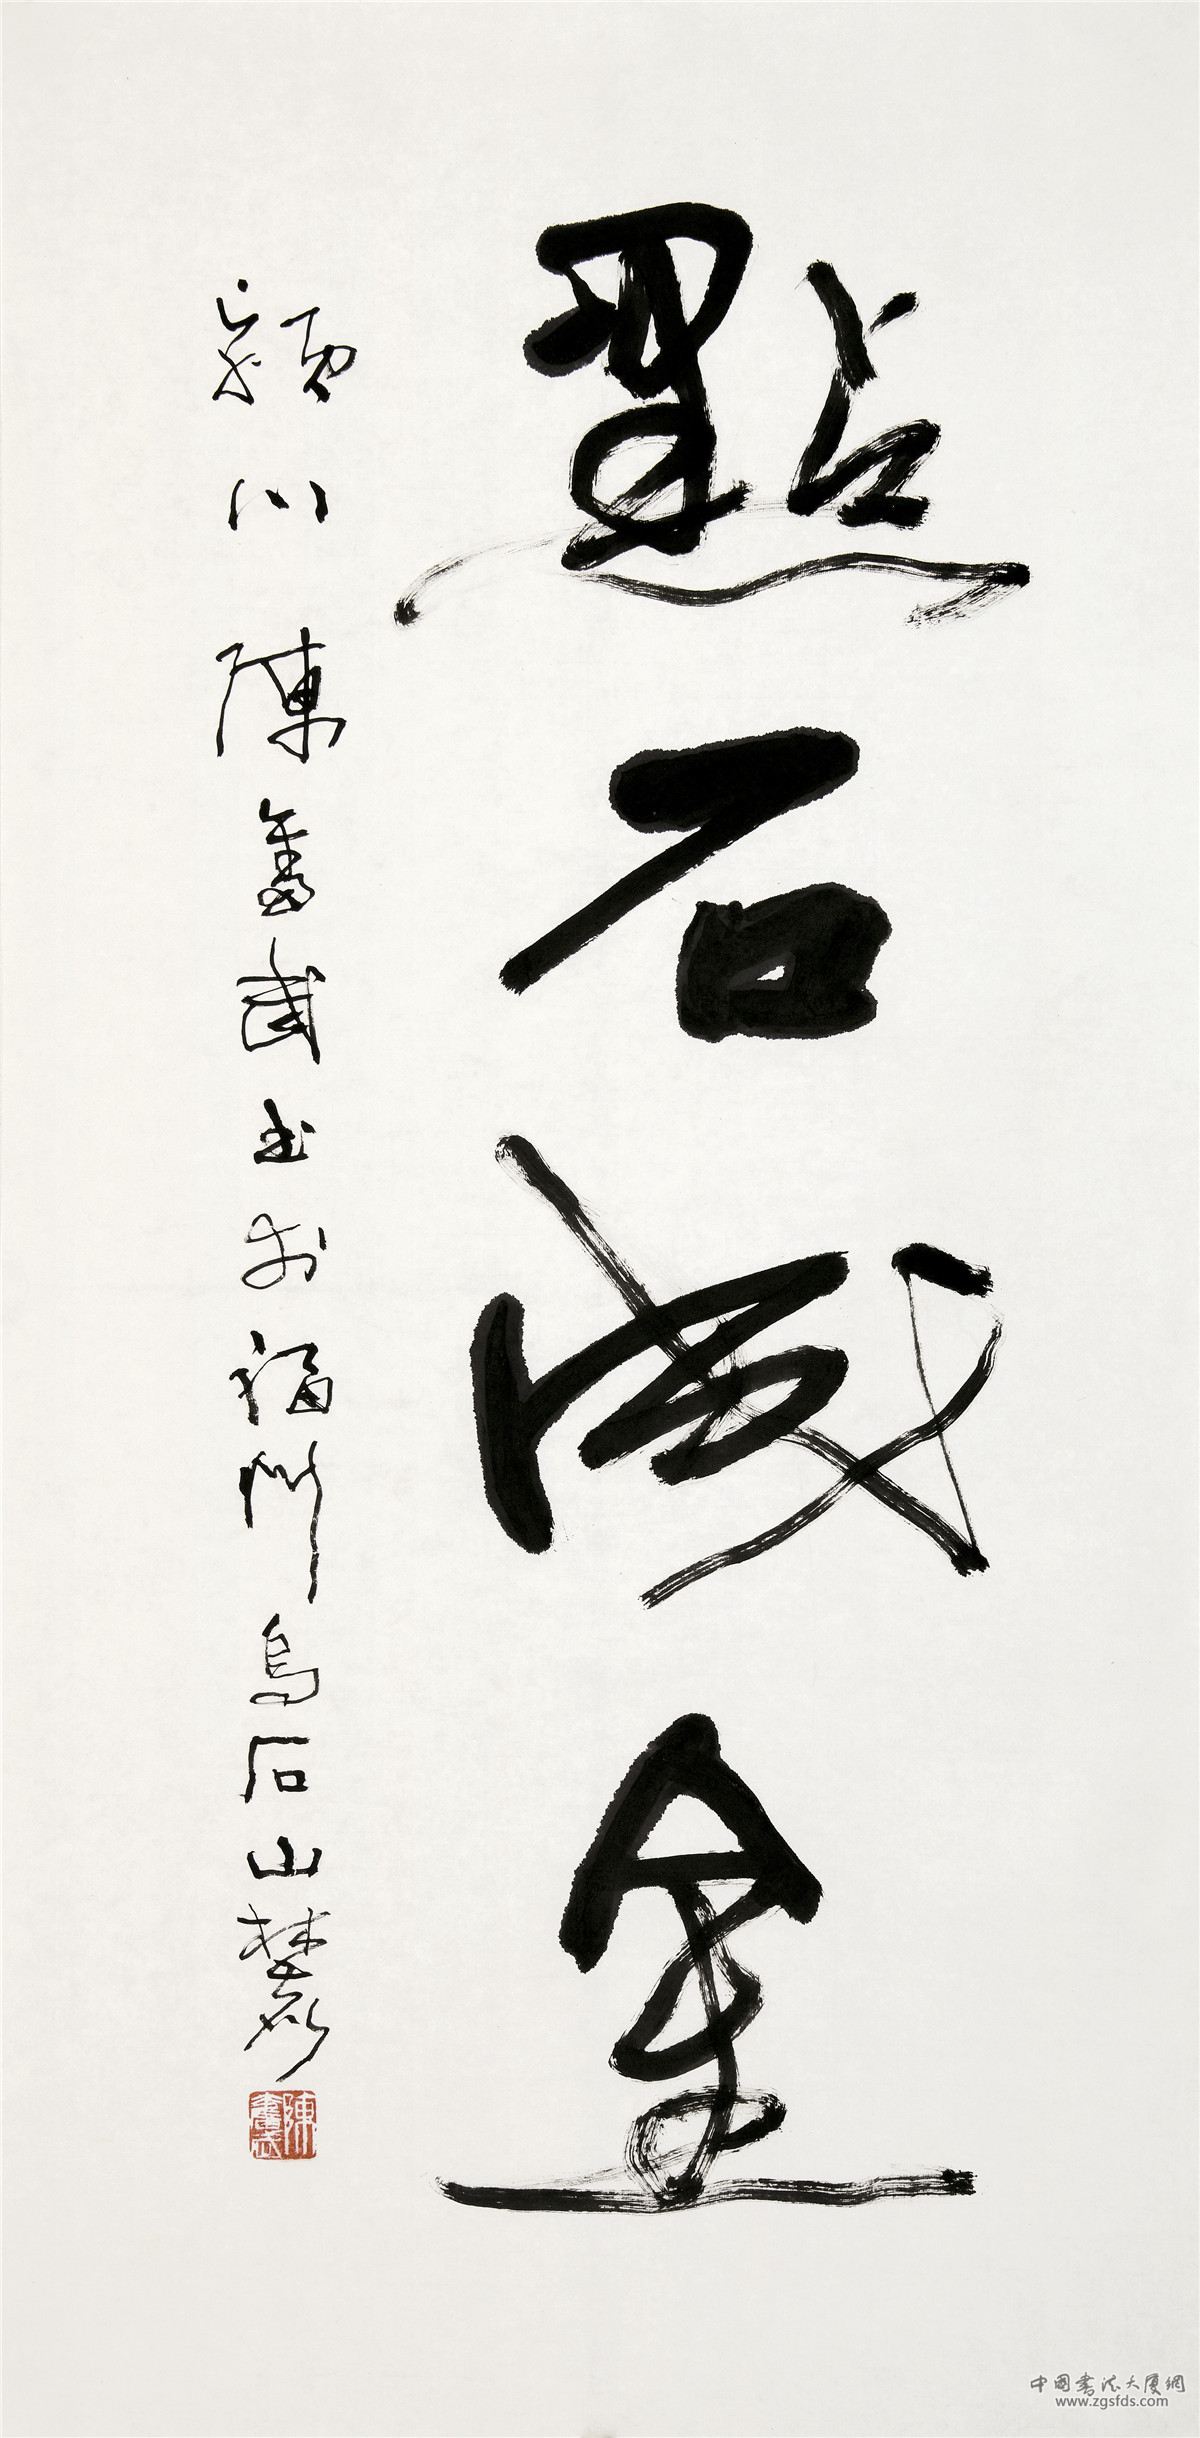 點石成金
穎川陳奮武書於福州烏石山麓
陳奮武
中國書法大廈網
www.zgsfds.com